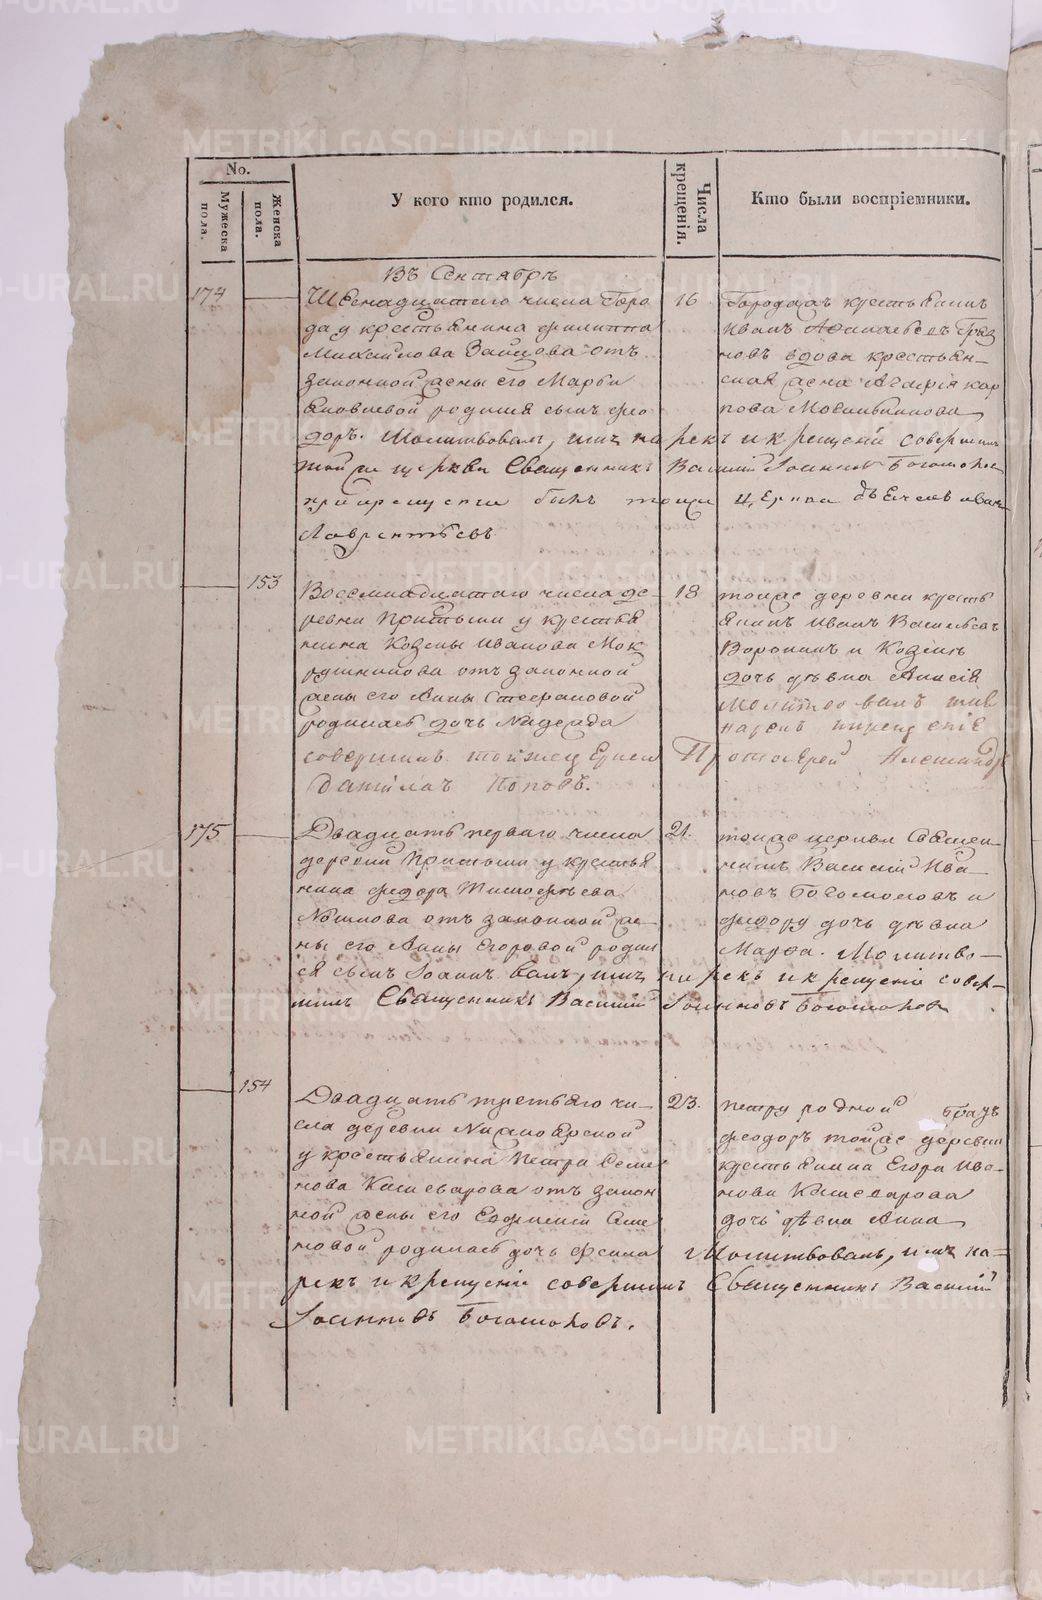 No.
Мужеска пола.
Женска пола.
У кого кто родился.
Числа крещенія.
Кто были воспріемники.
Въ Сентябрѣ
174
Шеснадцатаго числа Горо
да у крестьянина Филиппа
Михайлова Зайцова отъ
законной жены его Марьи
Яковлевой родился сынъ Фео
доръ. Молитвовалъ, имъ нарекъ и крещеніе совершилъ
тойже церкви Священникъ Василій Іоанновъ Богомолов
при крещеніи былъ тойже церкви дьячекъ Иванъ
Лаврентьевъ
16
Города крестьянинъ
Иванъ
новъ вдова крестьян-
ская жена кар
пова
153
Восемнадцатаго числа де-
ревни Притыки у крестья
нина Козмы Иванова Мок
рушникова отъ законной
жены его Анны Стефановой
родилась дочь Надежда
совершилъ тойже церкви Протоіерей Александръ
Даніилъ Поповъ.
18
тояже деревни кресть
янинъ Иванъ Васильевъ
Воронинъ и Козьмы
дочь дѣвка Анисія
Молитвовалъ имя
нарекъ и крещеніе
175
Двадцать перваго числа
деревни Притыки у крестья
нина Федора Тимофѣева
отъ законной же-
ны его Анны Егоровой родил
ся сынъ Іоаннъ валъ, имъ нарекъ и крещеніе совер-
шилъ Священникъ Василий Іоанновъ Богомолов
21.
тояже церкви Священ-
никъ Василій Ива
новъ Богомоловъ и
Федору дочь дѣвка
Марфа. Молитво-
154
Двадцать третьяго чи-
сла деревни
у крестьянина Петра Семе
нова Кашеварова отъ закон
ной жены его Евфиміи Семе
новой родилась дочь Фекла Молитвовалъ, имъ на-
рекъ и крещеніе совершилъ Священникъ Василій
Іоанновъ Богомоловъ.
23.
Петру родной братъ
Феодоръ тойже деревни
крестьянина Егора Ива-
нова Кашеварова
дочь дѣвка Анна
METRIKI.GASO-URAL.RU